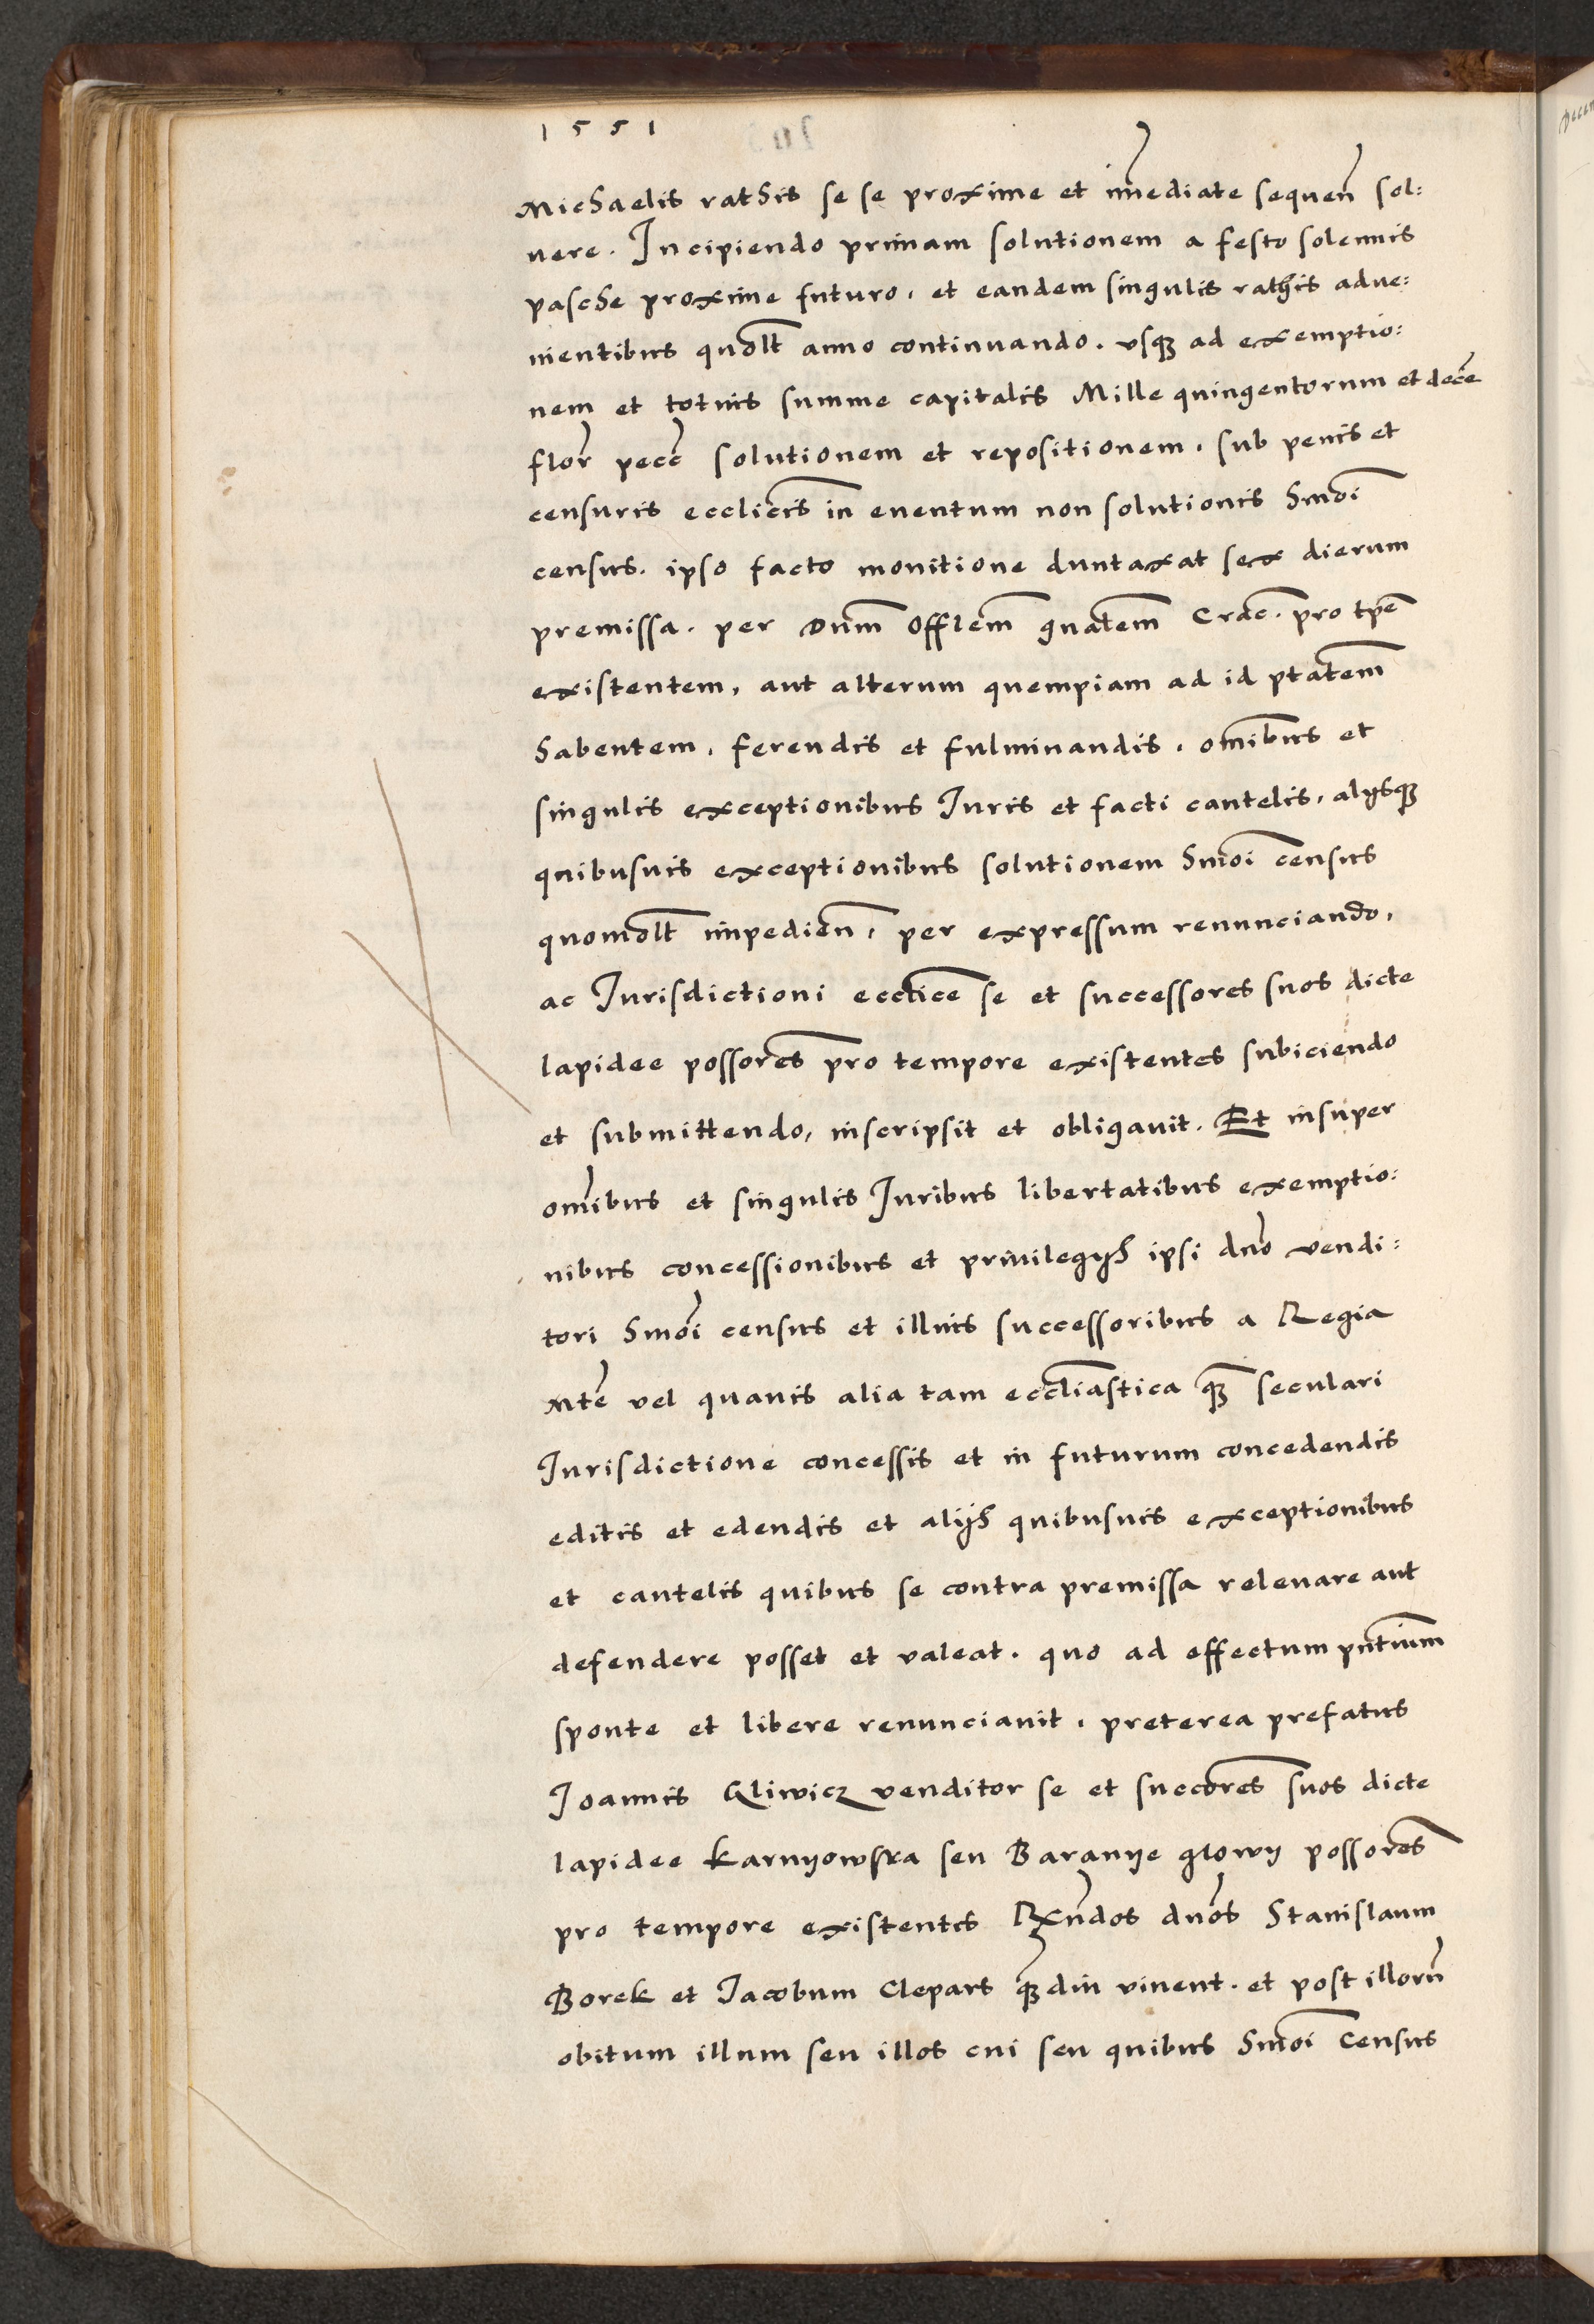 1551
Michaelis rathis se se proxime et im̃ediate sequen̄ sol:
uere. Incipiendo primam solutionem a festo solennis
pasche proxime futuro, et eandem singulis rathis adue:
nientibus quol̄t anno continuando. vsqʒ ad exemptio:
nem et totius summe capitalis Mille quingentorum et decē
flor̄ pecc̄ solutionem et repositionem, sub penis et
censuris eccl̄icis in euentum non solutionis hmōi
census. ipso facto monitione duntaxat sex dierum
premissa. per Dnm̄ Offlem̄ gnalem̄ Crac̄. pro tp̄e
existentem, aut alterum quempiam ad id ptatem̄
habentem, ferendis et fulminandis, om̄ibus et
singulis exceptionibus Iuris et facti cautelis, alysqʒ
quibusuis exceptionibus solutionem hmōi census
quomol̄t impedien̄, per expressum renunciando,
ac Iurisdictioni eccl̄ice se et successores suos dicte
lapidee possores̄ pro tempore existentes subiciendo
et submittendo, inscripsit et obligauit. Et insuper
om̄ibus et singulis Iuribus libertatibus exemptio:
nibus concessionibus et priuilegys ipsi dn̄o vendi:
tori hmōi census et illius successoribus a Regia
Mtē vel quauis alia tam eccl̄iastica qʒ̄ seculari
Iurisdictione concessis et in futurum concedendis
editis et edendis et alijs quibusuis exceptionibus
et cautelis quibus se contra premissa releuare aut
defendere posset et valeat. quo ad effectum pn̄tium
sponte et libere renunciauit, preterea prefatus
Ioannis Gliwicz venditor se et succores̄ suos dicte
lapidee Karnyowska seu Baranye glowy possores̄
pro tempore existentes Rxn̄dos dn̄os Stanislaum
Borek et Iacobum Clepars qʒ̄diu viuent. et post illorū
obitum illum seu illos cui seu quibus hmōi Census